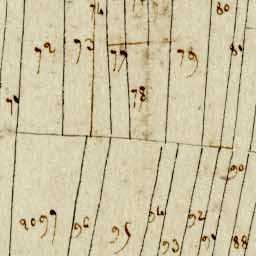 74 80
72 73 77 79 81
71 78
90
94 92
2097 96 95 93 91 88